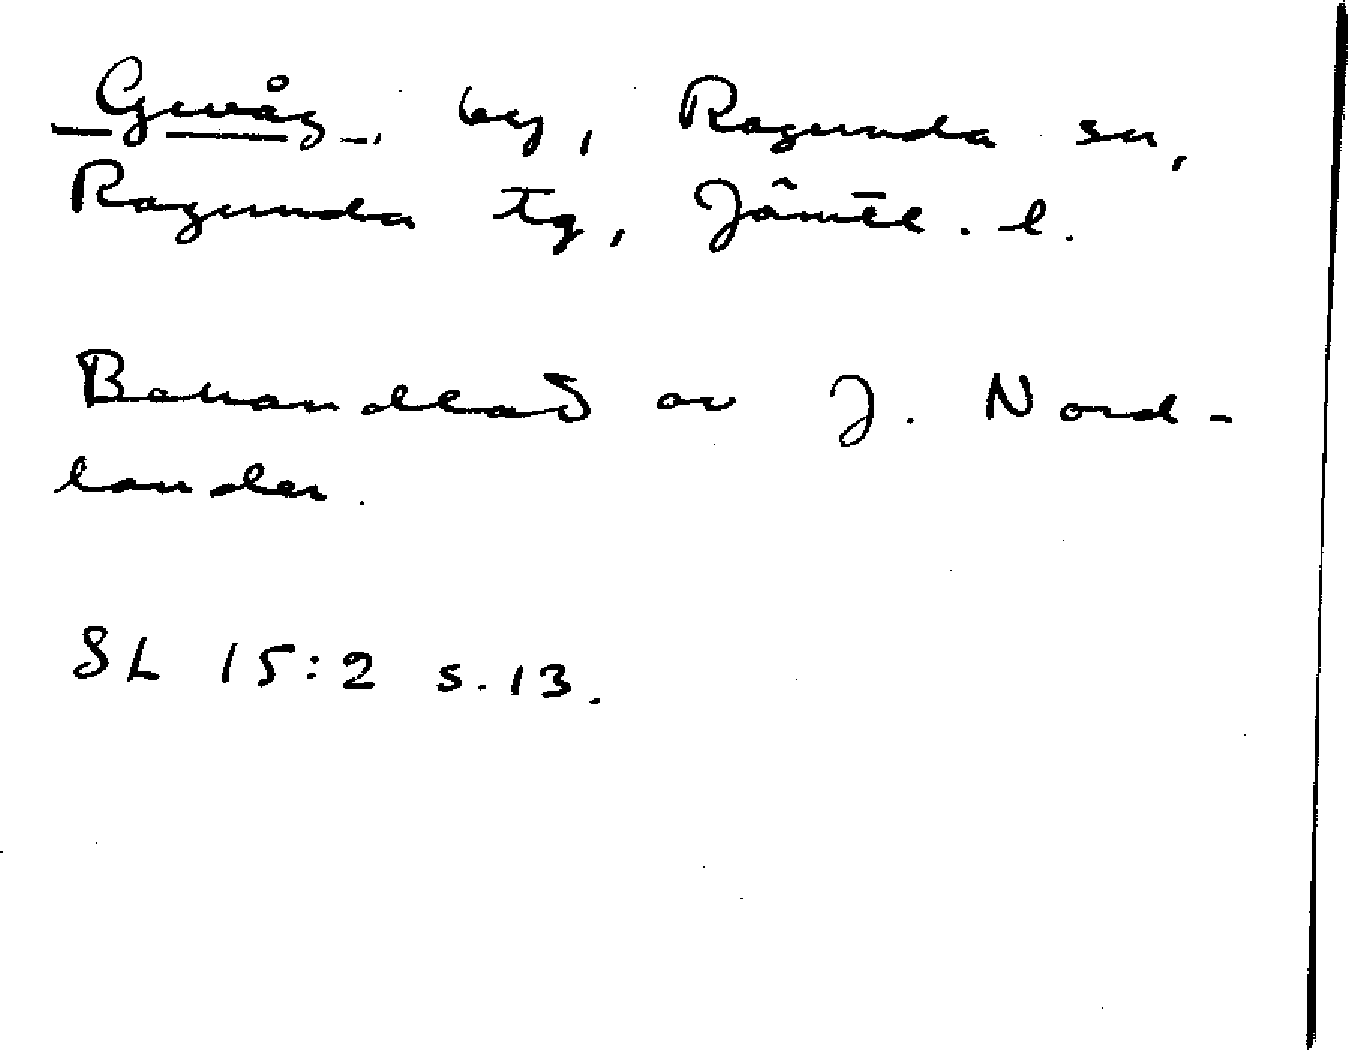 Gevåg, by, Ragunda sn,
Ragunda tg, Jämtl. l.
Behandlad av J. Nord-
lander.
SL 15:2 s. 13.